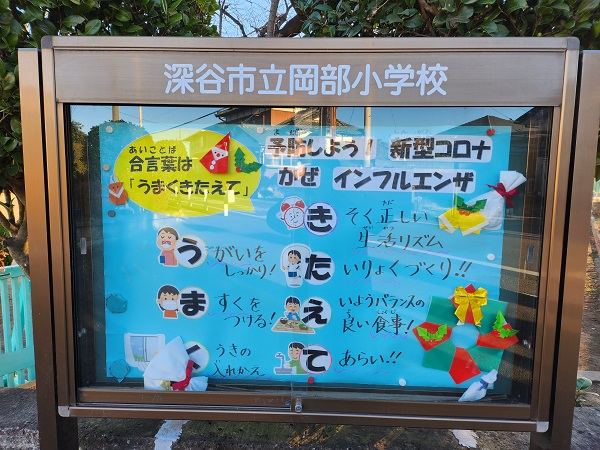 深谷市立岡部小学校
あいことば
合言葉は
「うまくきたえて」
予防しよう! 新型コロナ
かぜ インフルエンザ
う がいを
しっかり!
ま すくを
つける!
うきの
入れかえ
き そく正しい
生活リズム
た いりょくづくり!!
え いようバランスの
良い食事!
て あらい!!